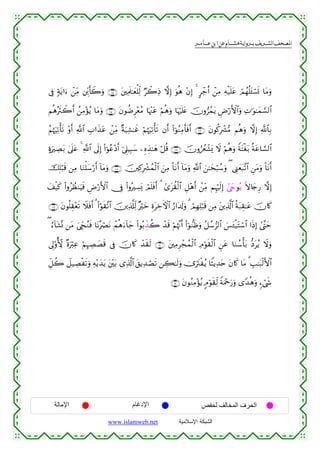 المصحف الشريف برواية هشام عن ابن عامر
وَمَا تَسْـَٔلُهُمْ عَلَيْهِ مِنْ أَجْرٍ ۚ إِنْ هُوَ إِلَّا ذِكْرٌ لِّلْعَٰلَمِينَ ۝ وَكَأَيِّن مِّنْ ءَايَةٍ فِى
ٱلسَّمَٰوَٰتِ وَٱلْأَرْضِ يَمُرُّونَ عَلَيْهَا وَهُمْ عَنْهَا مُعْرِضُونَ ۝ وَمَا يُؤْمِنُ أَكْثَرُهُم
بِٱللَّهِ إِلَّا وَهُم مُّشْرِكُونَ ۝ أَفَأَمِنُوٓا۟ أَن تَأْتِيَهُمْ غَٰشِيَةٌ مِّنْ عَذَابِ ٱللَّهِ أَوْ تَأْتِيَهُمُ
ٱلسَّاعَةُ بَغْتَةً وَهُمْ لَا يَشْعُرُونَ ۝ قُلْ هَٰذِهِۦ سَبِيلِىٓ أَدْعُوٓا۟ إِلَى ٱللَّهِ ۚ عَلَىٰ بَصِيرَةٍ
أَنَا۠ وَمَنِ ٱتَّبَعَنِى ۖ وَسُبْحَٰنَ ٱللَّهِ وَمَآ أَنَا۠ مِنَ ٱلْمُشْرِكِينَ ۝ وَمَآ أَرْسَلْنَا مِن قَبْلِكَ
إِلَّا رِجَالًا يُوحَىٰٓ إِلَيْهِم مِّنْ أَهْلِ ٱلْقُرَىٰٓ ۗ أَفَلَمْ يَسِيرُوا۟ فِى ٱلْأَرْضِ فَيَنظُرُوا۟ كَيْفَ
كَانَ عَٰقِبَةُ ٱلَّذِينَ مِن قَبْلِهِمْ ۗ وَلَدَارُ ٱلْـَٔاخِرَةِ خَيْرٌ لِّلَّذِينَ ٱتَّقَوْا۟ ۗ أَفَلَا تَعْقِلُونَ ۝
حَتَّىٰٓ إِذَا ٱسْتَيْـَٔسَ ٱلرُّسُلُ وَظَنُّوٓا۟ أَنَّهُمْ قَدْ كُذِّبُوا۟ جَآءَهُمْ نَصْرُنَا فَنُجِّىَ مَن نَّشَآءُ ۖ
وَلَا يُرَدُّ بَأْسُنَا عَنِ ٱلْقَوْمِ ٱلْمُجْرِمِينَ ۝ لَقَدْ كَانَ فِى قَصَصِهِمْ عِبْرَةٌ لِّأُو۟لِى
ٱلْأَلْبَٰبِ ۗ مَا كَانَ حَدِيثًا يُفْتَرَىٰ وَلَٰكِن تَصْدِيقَ ٱلَّذِى بَيْنَ يَدَيْهِ وَتَفْصِيلَ كُلِّ
شَىْءٍ وَهُدًى وَرَحْمَةً لِّقَوْمٍ يُؤْمِنُونَ ۝
الحرف المخالف لحفص الإدغام الإمالة
الشبكة الإسلامية www.islamweb.net